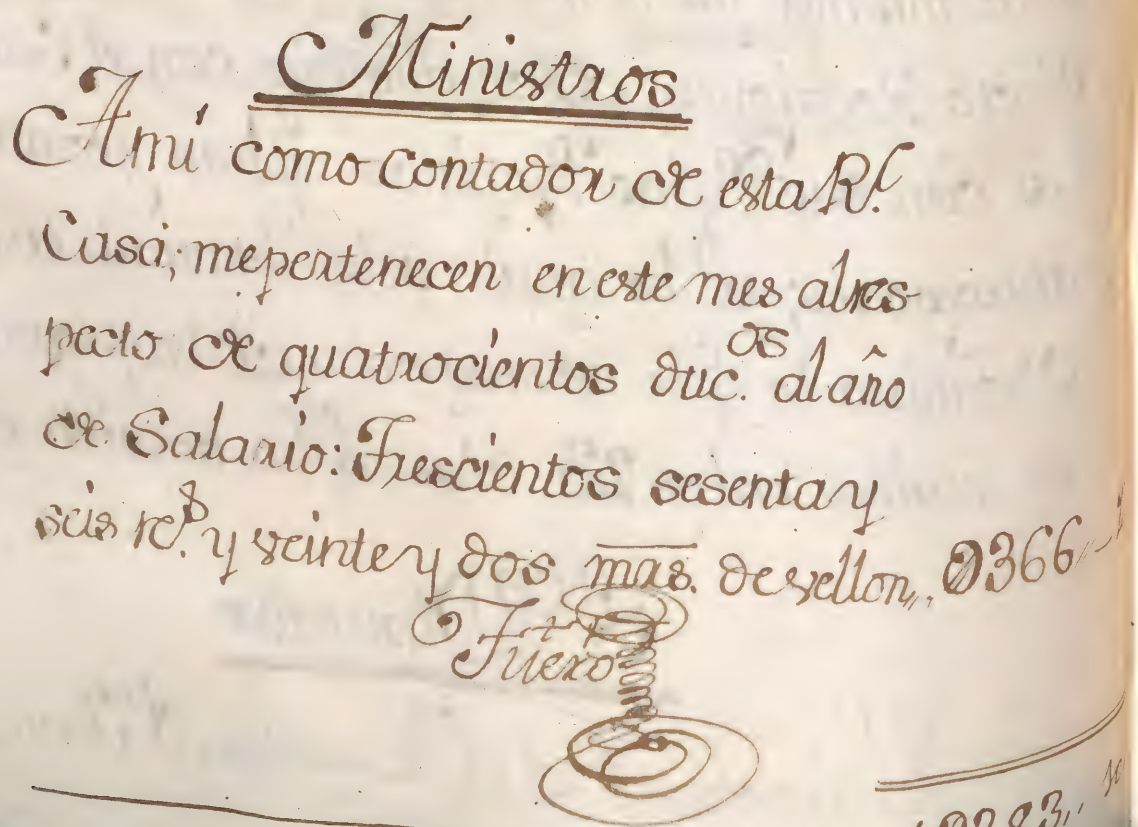 Ministros
A mi como Contador de esta Rl.
Casa; mepertenecen en este mes alres-
pecto de quatrocientos duc.os al año
de Salario: Trescientos sesenta y
seis rs. y veinte y dos mrs. de vellon,, 0366
Fuero